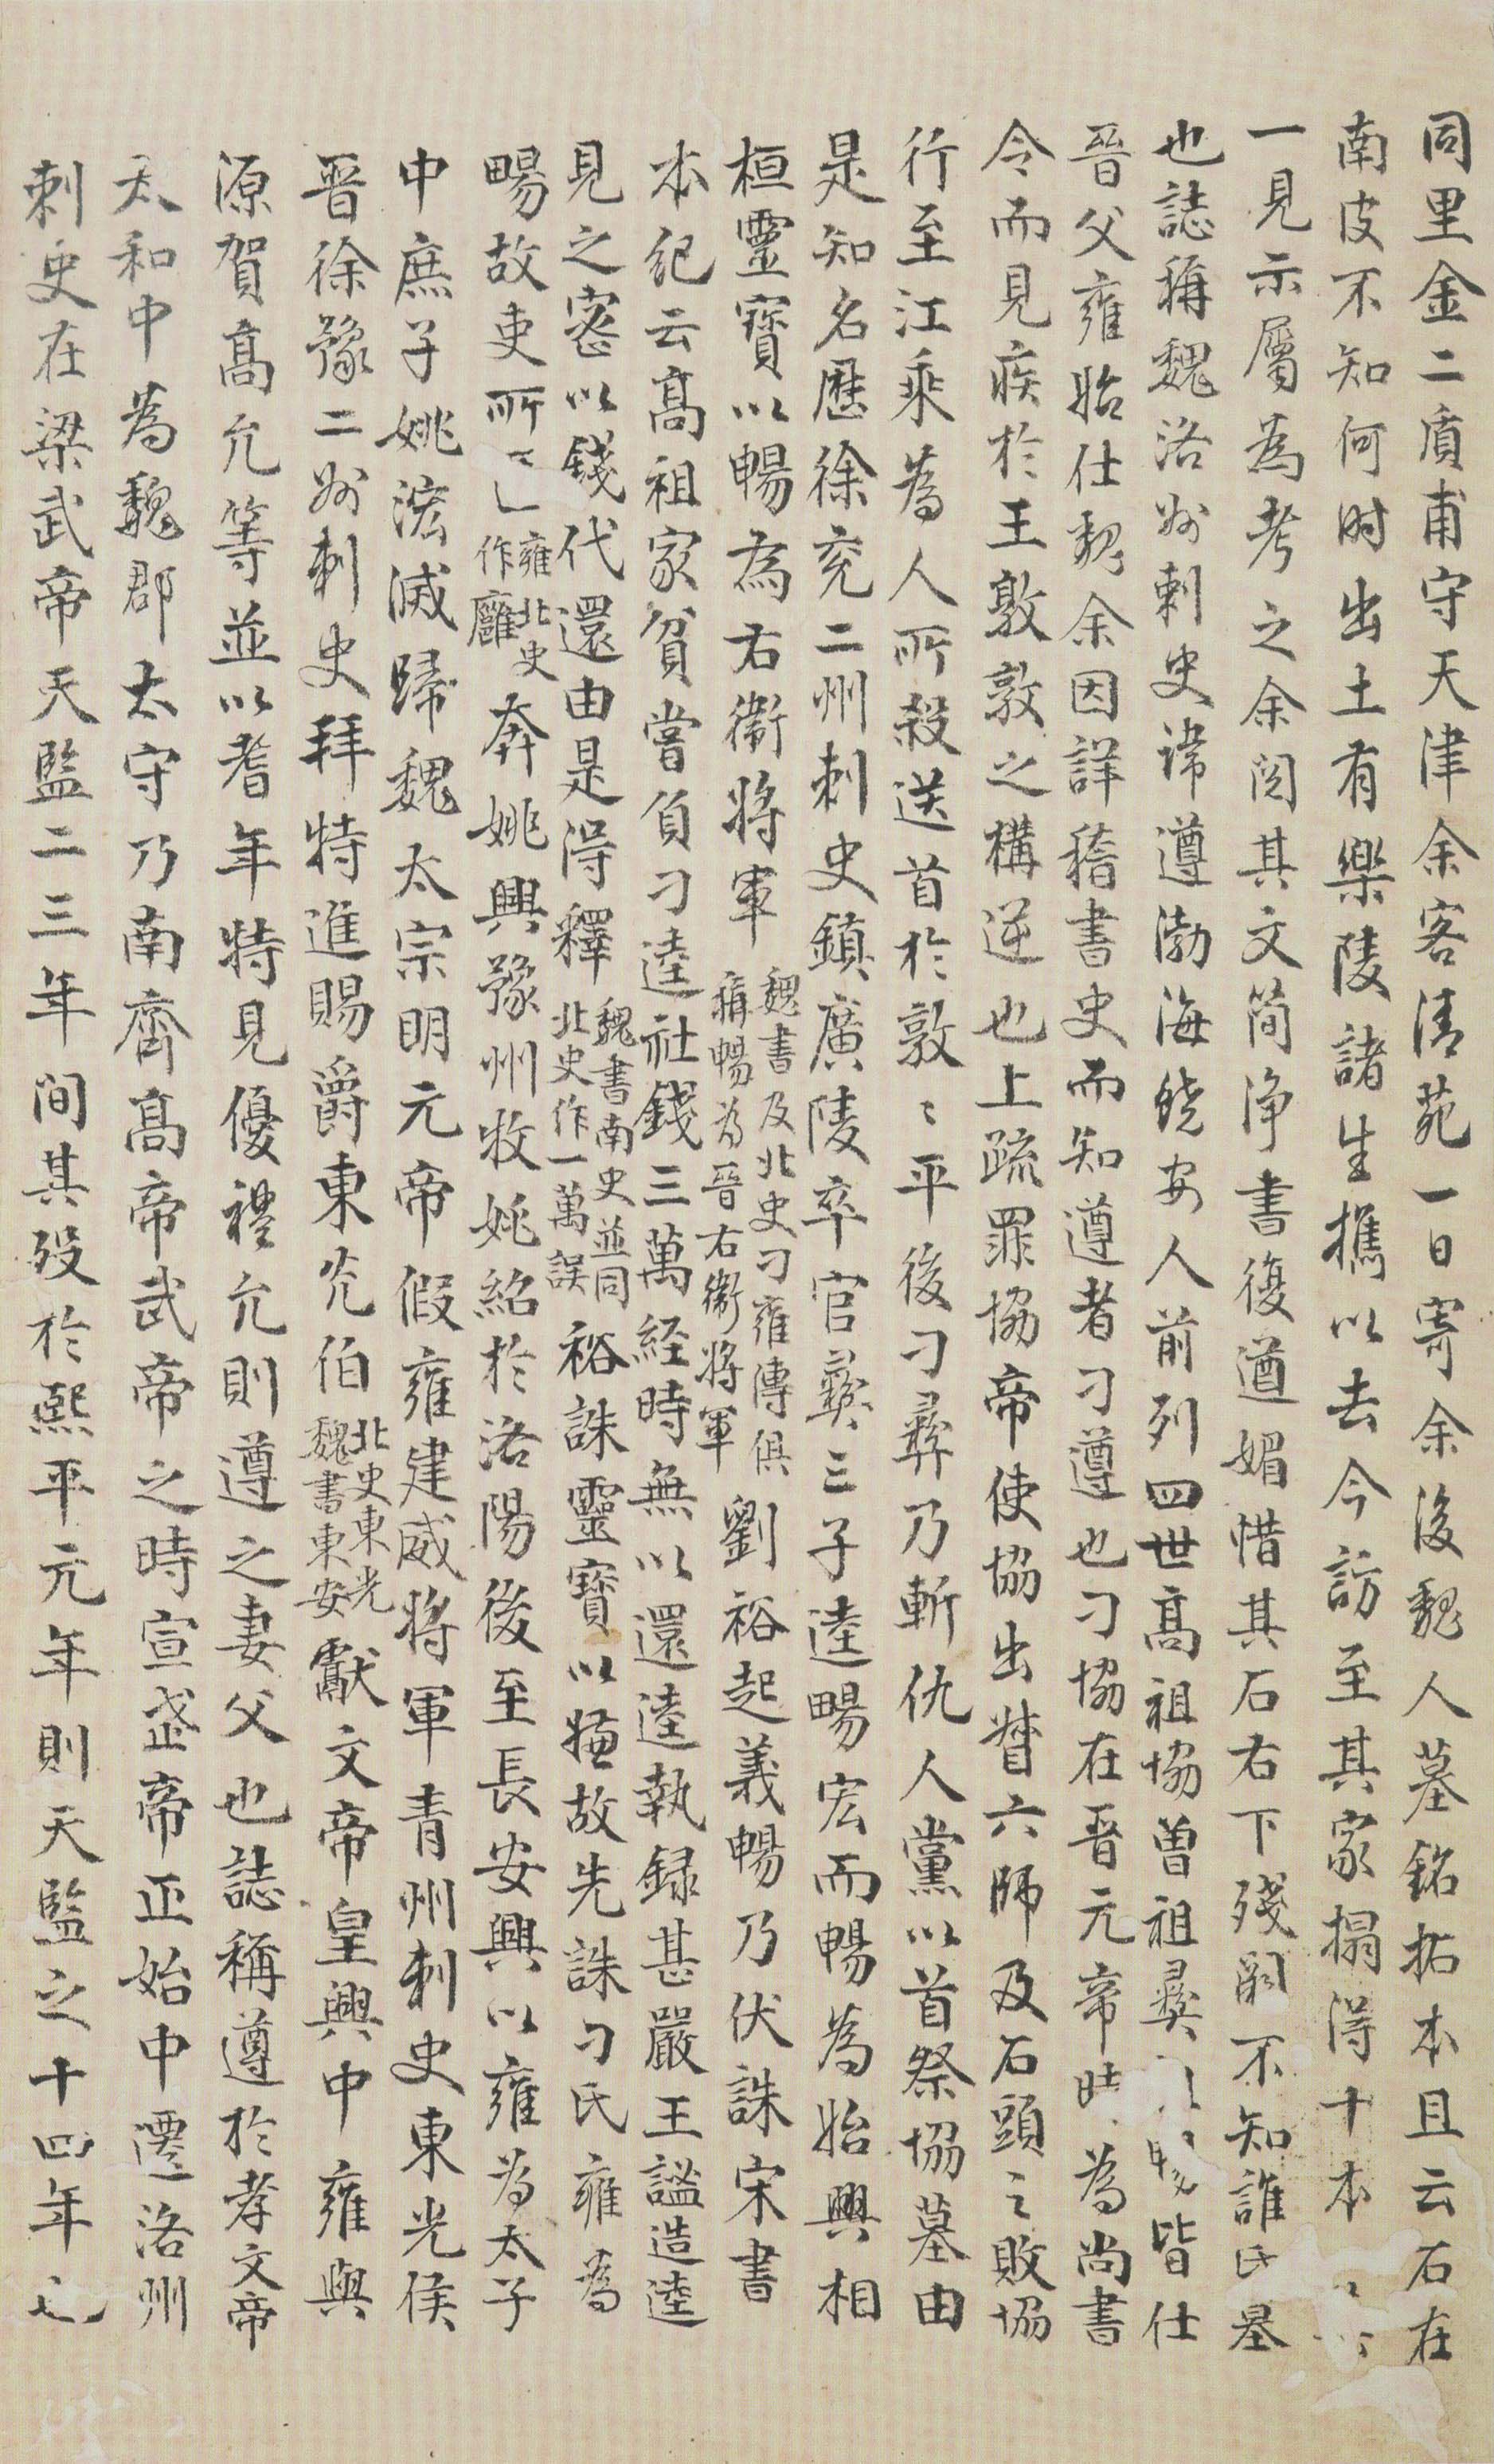 同里金二質甫守天津余客清苑一日寄余後魏人墓銘拓本且云石在
南皮不知何時出土有樂陵諸生攜以去今訪至其家搨得十本
一見示屬為考之余閱其文簡淨書復遒媚惜其石右下殘闕不知誰氏墓
也誌稱魏洛州刺史諱遵渤海饒安人前列四世高祖協曾祖彝 暢皆仕
晉父雍始仕魏余因詳稽書史而知遵者刁遵也刁協在晉元帝時為尚書
令而見疾於王敦敦之構逆也上疏罪協帝使協出督六師及石頭之敗協
行至江乘為人所殺送首於敦〻平後刁彝乃斬仇人黨以首祭協墓由
是知名歷徐兗二州刺史鎮廣陵卒官彝三子逵暢宏而暢為始興相
桓靈寶以暢為右衛將軍魏書及北史刁雍傳俱稱暢為晉右衛將軍劉裕起義暢乃伏誅宋書
本紀云高祖家貧嘗負刁逵社錢三萬經時無以還逵執錄甚嚴王謐造逵
見之密以錢代還由是得釋魏書南史並同北史作一萬誤裕誅靈寶以嫌故先誅刁氏雍為
暢故吏所匿雍北史作廱奔姚興豫州牧姚紹於洛陽後至長安興以雍為太子
中庶子姚泓滅歸魏太宗明元帝假雍建威將軍青州刺史東光侯
晉徐豫二州刺史拜特進賜爵東光伯北史東光魏書東安獻文帝皇興中雍與
源賀高允等並以耆年特見優禮允則遵之妻父也誌稱遵於孝文帝
太和中為魏郡太守乃南齊高帝武帝之時宣武帝正始中遷洛州
刺史在梁武帝天監二三年間其歿於熙平元年則天監之十四年也